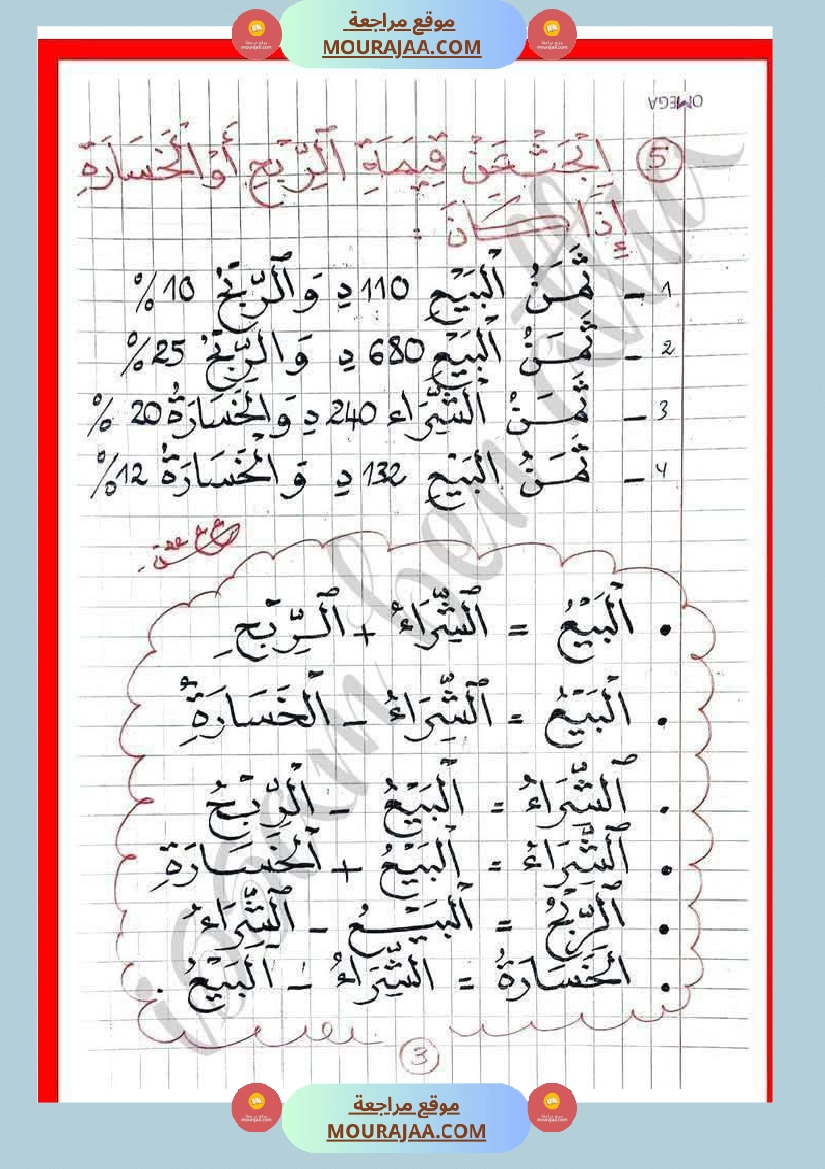 موقع مراجعة
MOURAJAA.COM
OMEGA
5 اِبْحَثْ عَنْ قِيمَةِ الرِّبْحِ أَوْ الْخَسَارَةِ
إِذَا كَانَ :
1 - ثَمَنُ الْبَيْعِ 110 د وَالرِّبْحُ 10 %
2 - ثَمَنُ الْبَيْعِ 680 د وَالرِّبْحُ 25 %
3 - ثَمَنُ الشِّرَاء 240 د وَالْخَسَارَةُ 20 %
4 - ثَمَنُ الْبَيْعِ 132 د وَ الْخَسَارَةُ 12 %
• الْبَيْعُ = الشِّرَاءُ + الرِّبْحِ
• الْبَيْعُ = الشِّرَاءُ - الْخَسَارَةِ
• الشِّرَاءُ = الْبَيْعُ - الرِّبْحُ
• الشِّرَاءُ = الْبَيْعُ + الْخَسَارَةِ
• الرِّبْحُ = الْبَيْعُ - الشِّرَاءُ
• الْخَسَارَةُ = الشِّرَاءُ - الْبَيْعُ .
3
issam ben
موقع مراجعة
MOURAJAA.COM